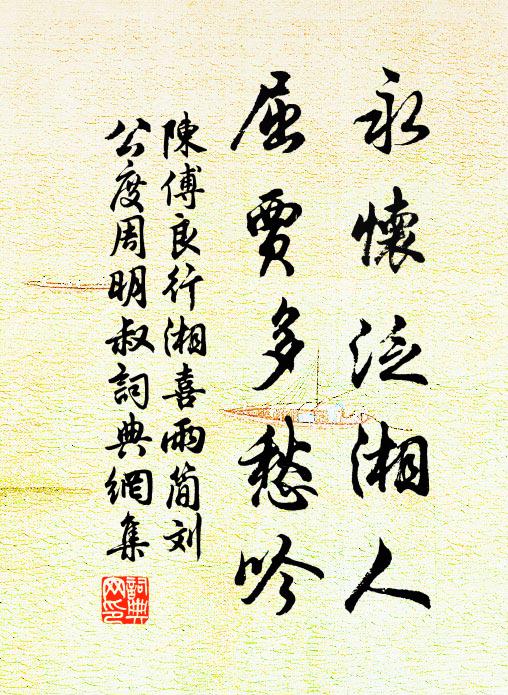 永懷泛湘人
屈賈多愁吟
陳傅良行湘喜雨簡刘
公度周明叔詞典網集
詞典網印